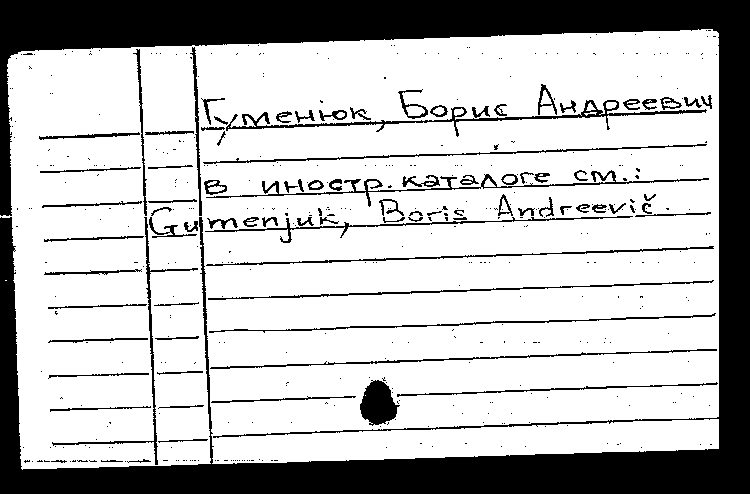 Гуменюк, Борис Андреевич
в иностр. каталоге см.:
Gumenjuk, Boris Andreevič.